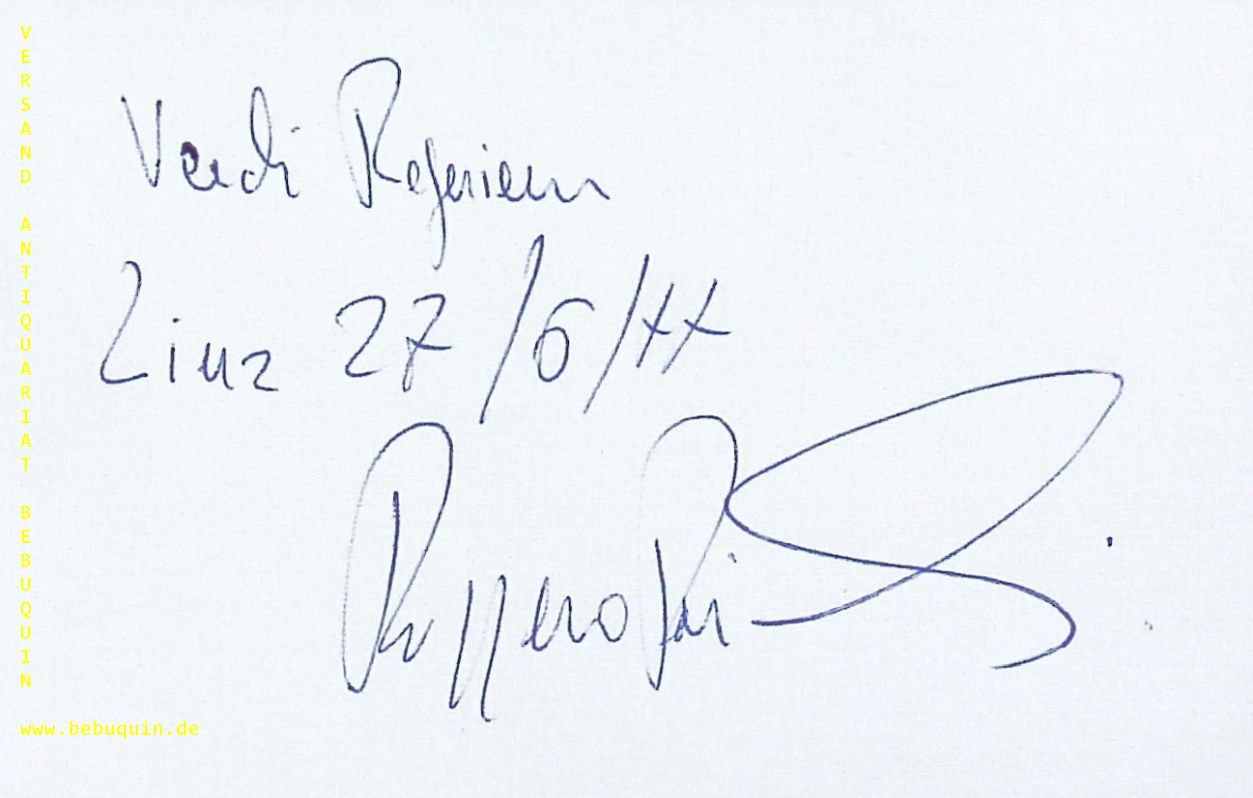 VERSAND ANTIQUARIAT BEBUQUIN
Verdi Requiem
Linz 27/6/77
Ruggero
www.bebuquin.de